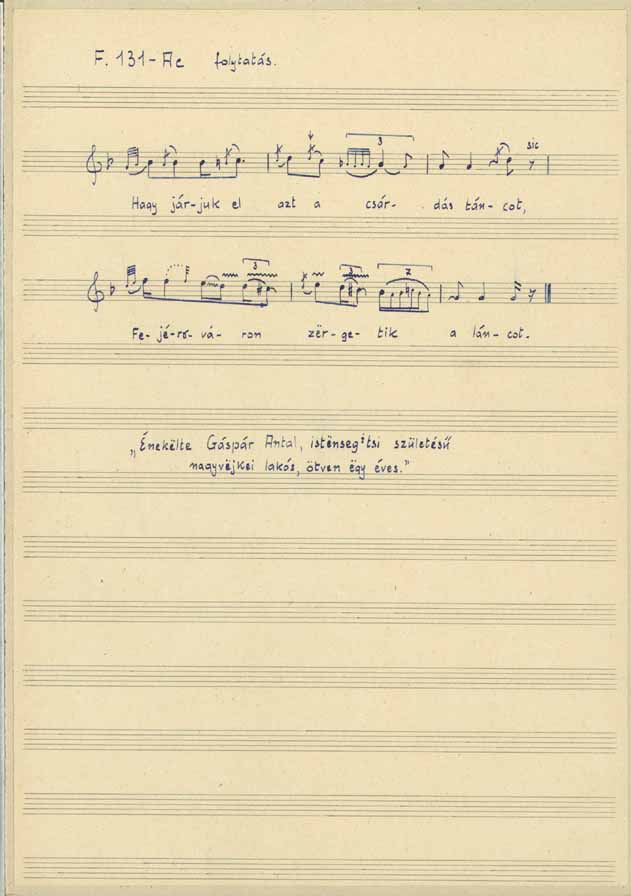 F. 131-Ac folytatás.
3
sic
Hagy jár-juk el azt a csár- dás tán-cot,
3
3
7
Fe-jé-ro-vá-ron zër-ge-tik a lán-cot.
„Énekëlte Gáspár Antal, istënsegítsi születésű
nagyvëjkei lakós, ötven ëgy éves."